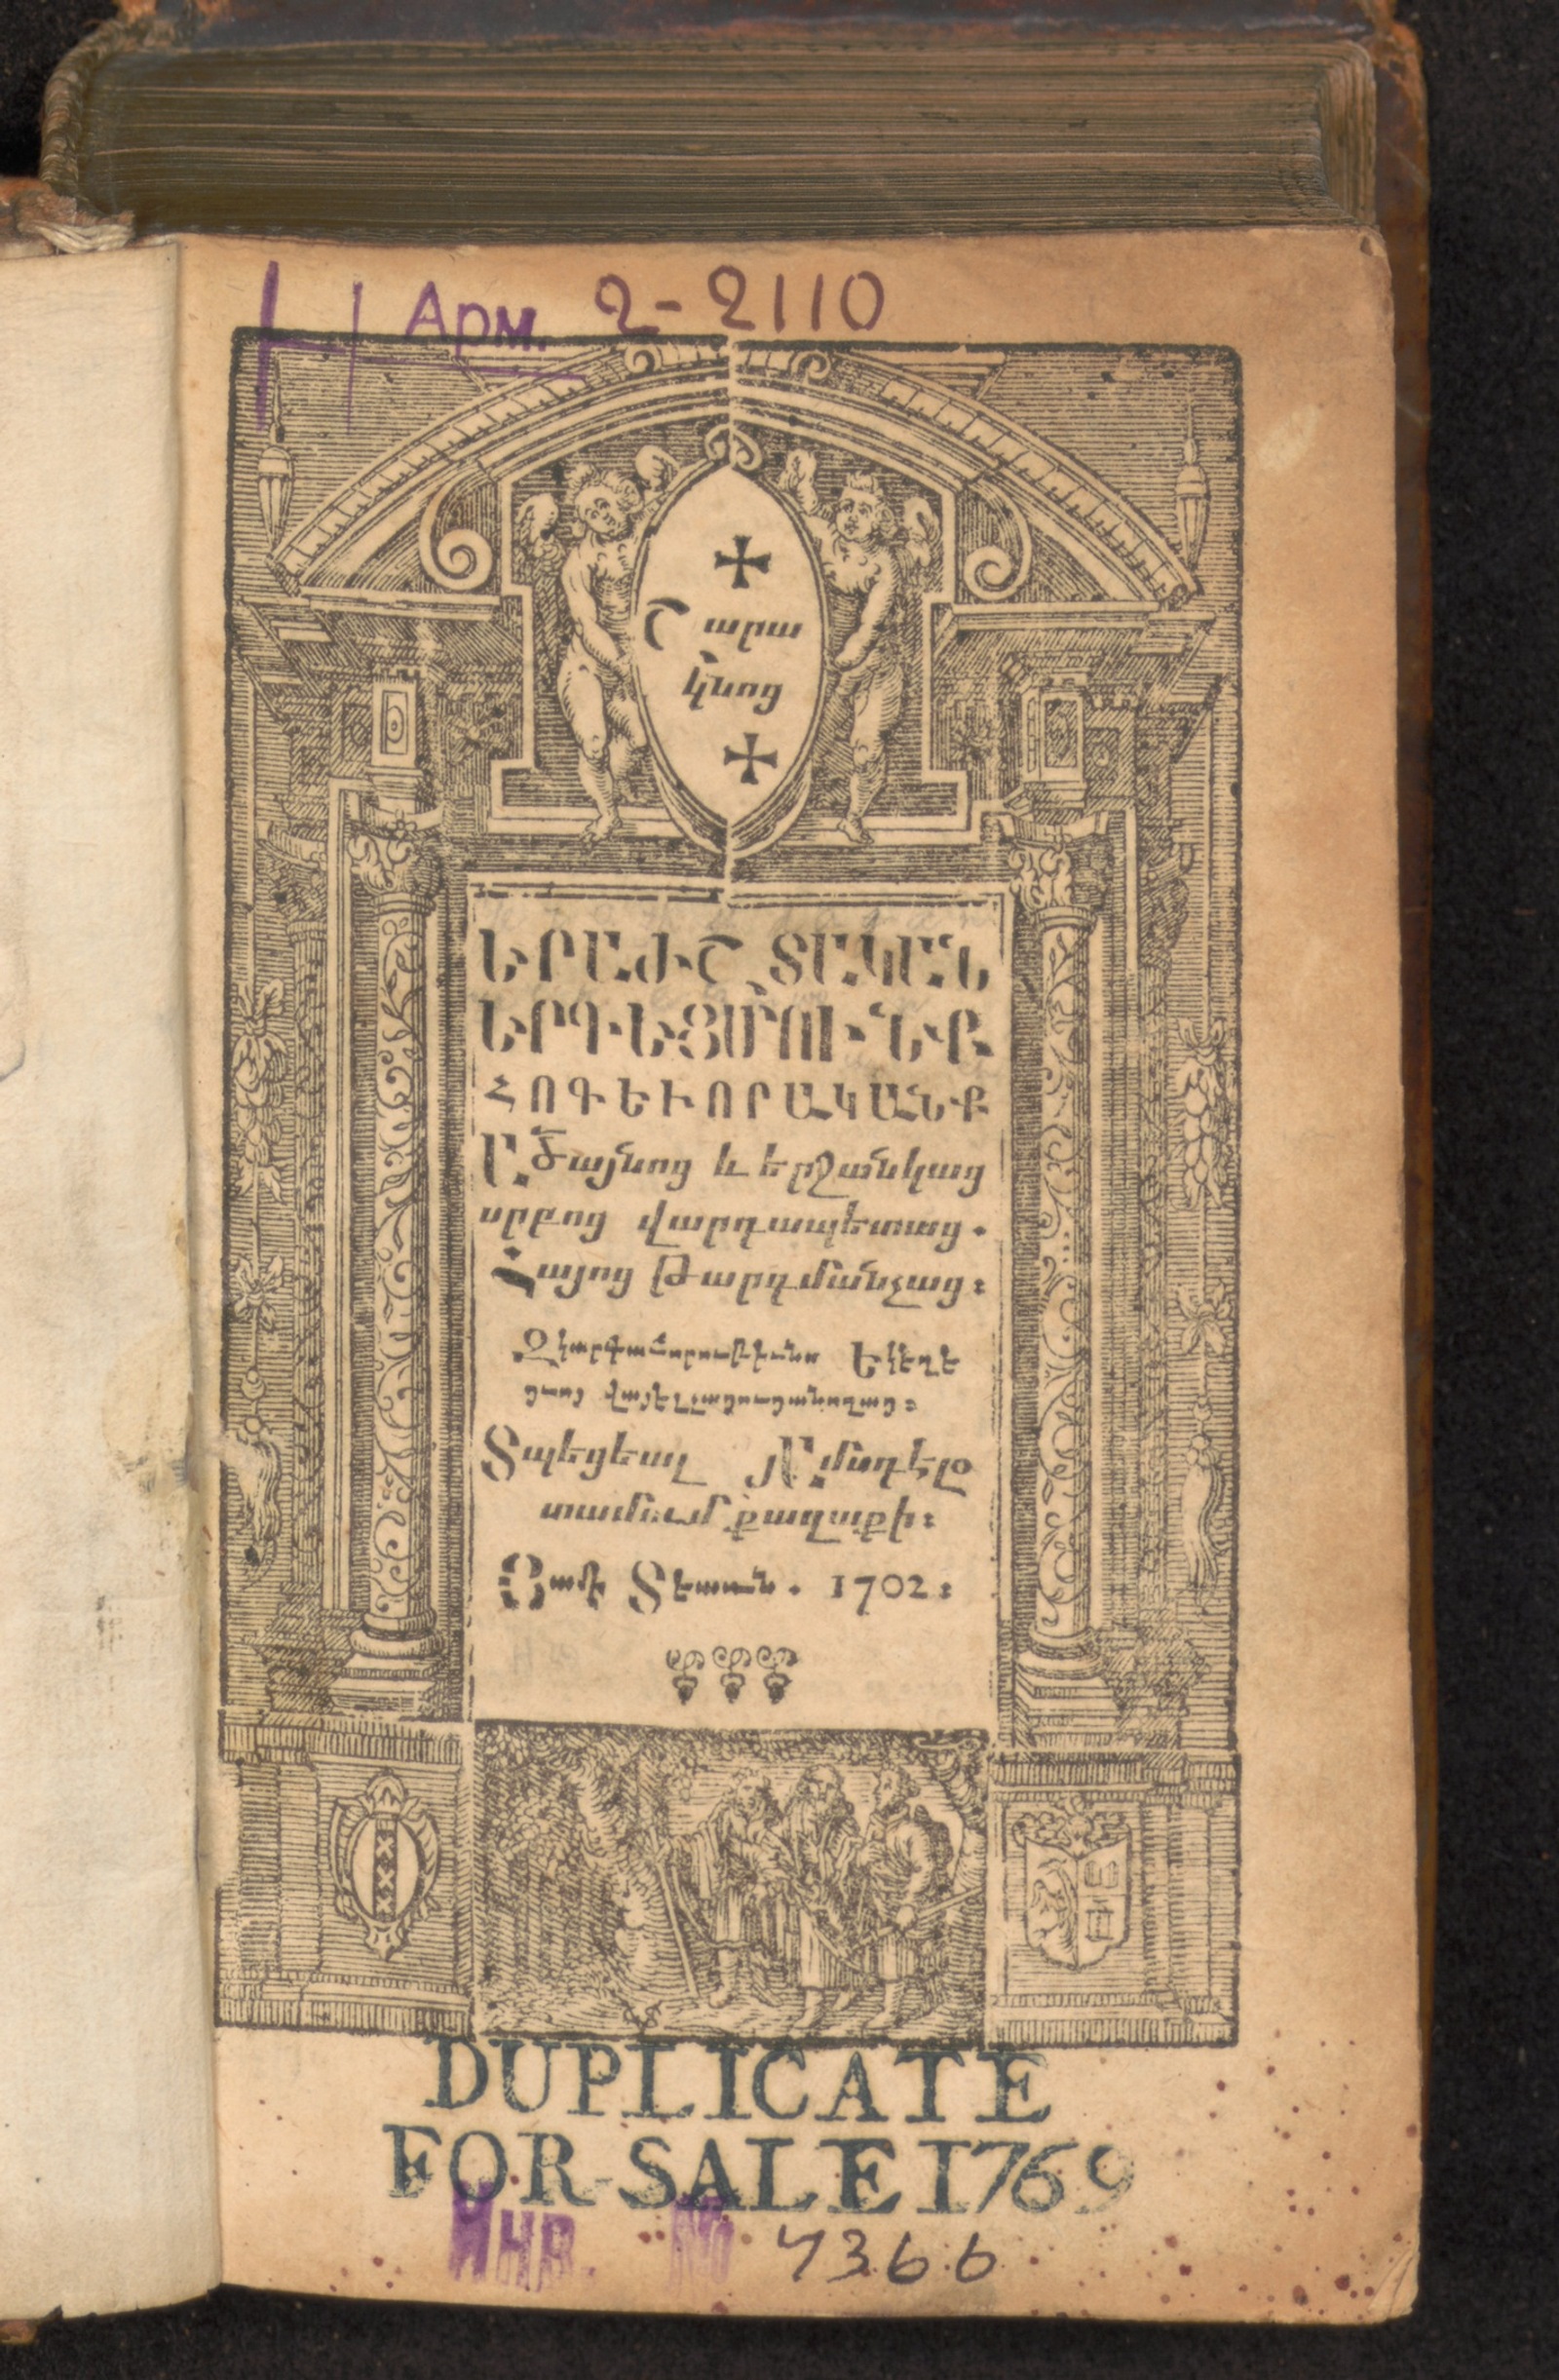 Арм. 2-2110
Շարա
կնոց
ԵՐԱԺՇՏԱԿԱՆ
ԵՐԳԵՑՄՈՒՆՔ
ՀՈԳԵՒՈՐԱԿԱՆՔ
Ա՟Ծայնոց և երջանկաց
սրբոց վարդապետաց.
Հայոց Թարգմանչաց։
Եկեղե
Տպեցեալ յԱմսդէլօ
տամում քաղաքի։
Յամի Տեառն. 1702։
DUPLICATE
FOR SALE 1769
Инв. № 7366